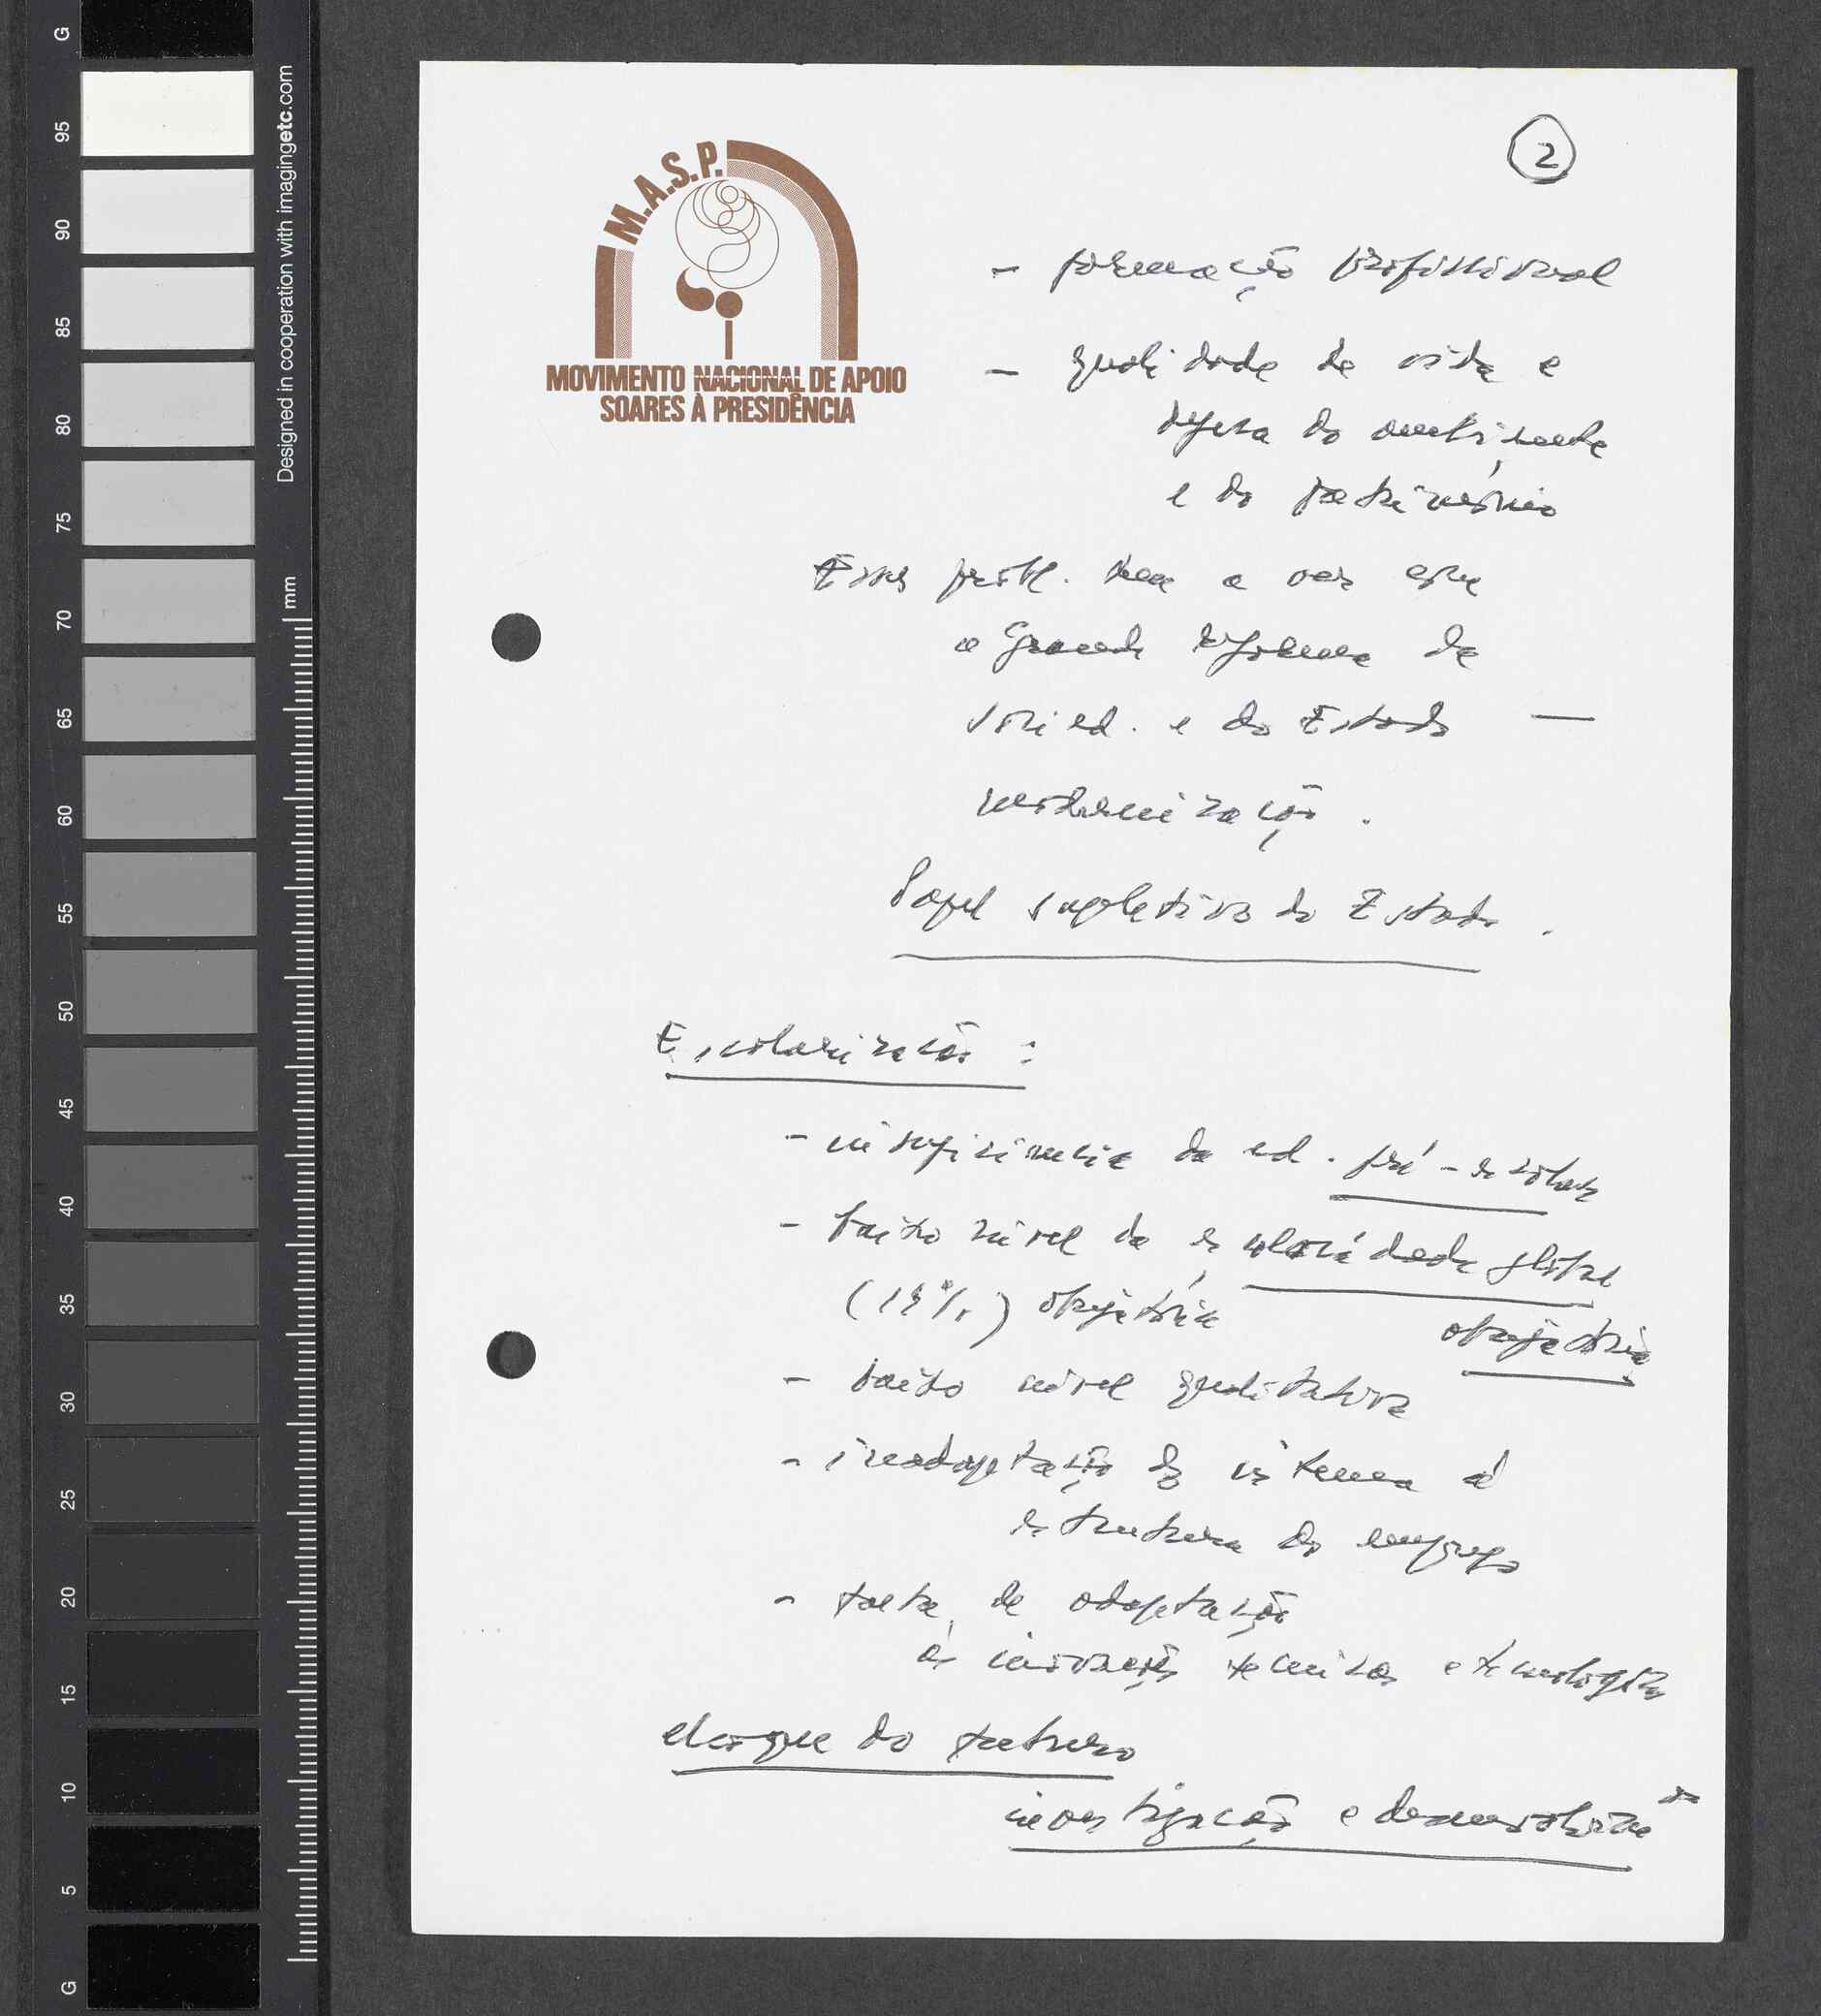 2
M.A.S.P.
MOVIMENTO NACIONAL DE APOIO
SOARES À PRESIDÊNCIA
- formação profissional
- qualidade de vida e
defesa do ambiente
e do património
Esses probl. tem a ver com
a Grande reforma da
socied. e do Estado —
modernização.
Papel supletivo do Estado.
Escolarização :
- insuficiência da ed. pré-escolar
- baixo nível da escolaridade global
(    ) obrigatória
obrigatória
- baixo nível qualitativo
- inadaptação do sistema à
estrutura do emprego
- falta de adaptação
às inovações técnicas e tecnológicas
choque do futuro
investigação e desenvolvim.to
Designed in cooperation with imagingetc.com
mm
G
95
90
85
80
75
70
65
60
55
50
45
40
35
30
25
20
15
10
5
G